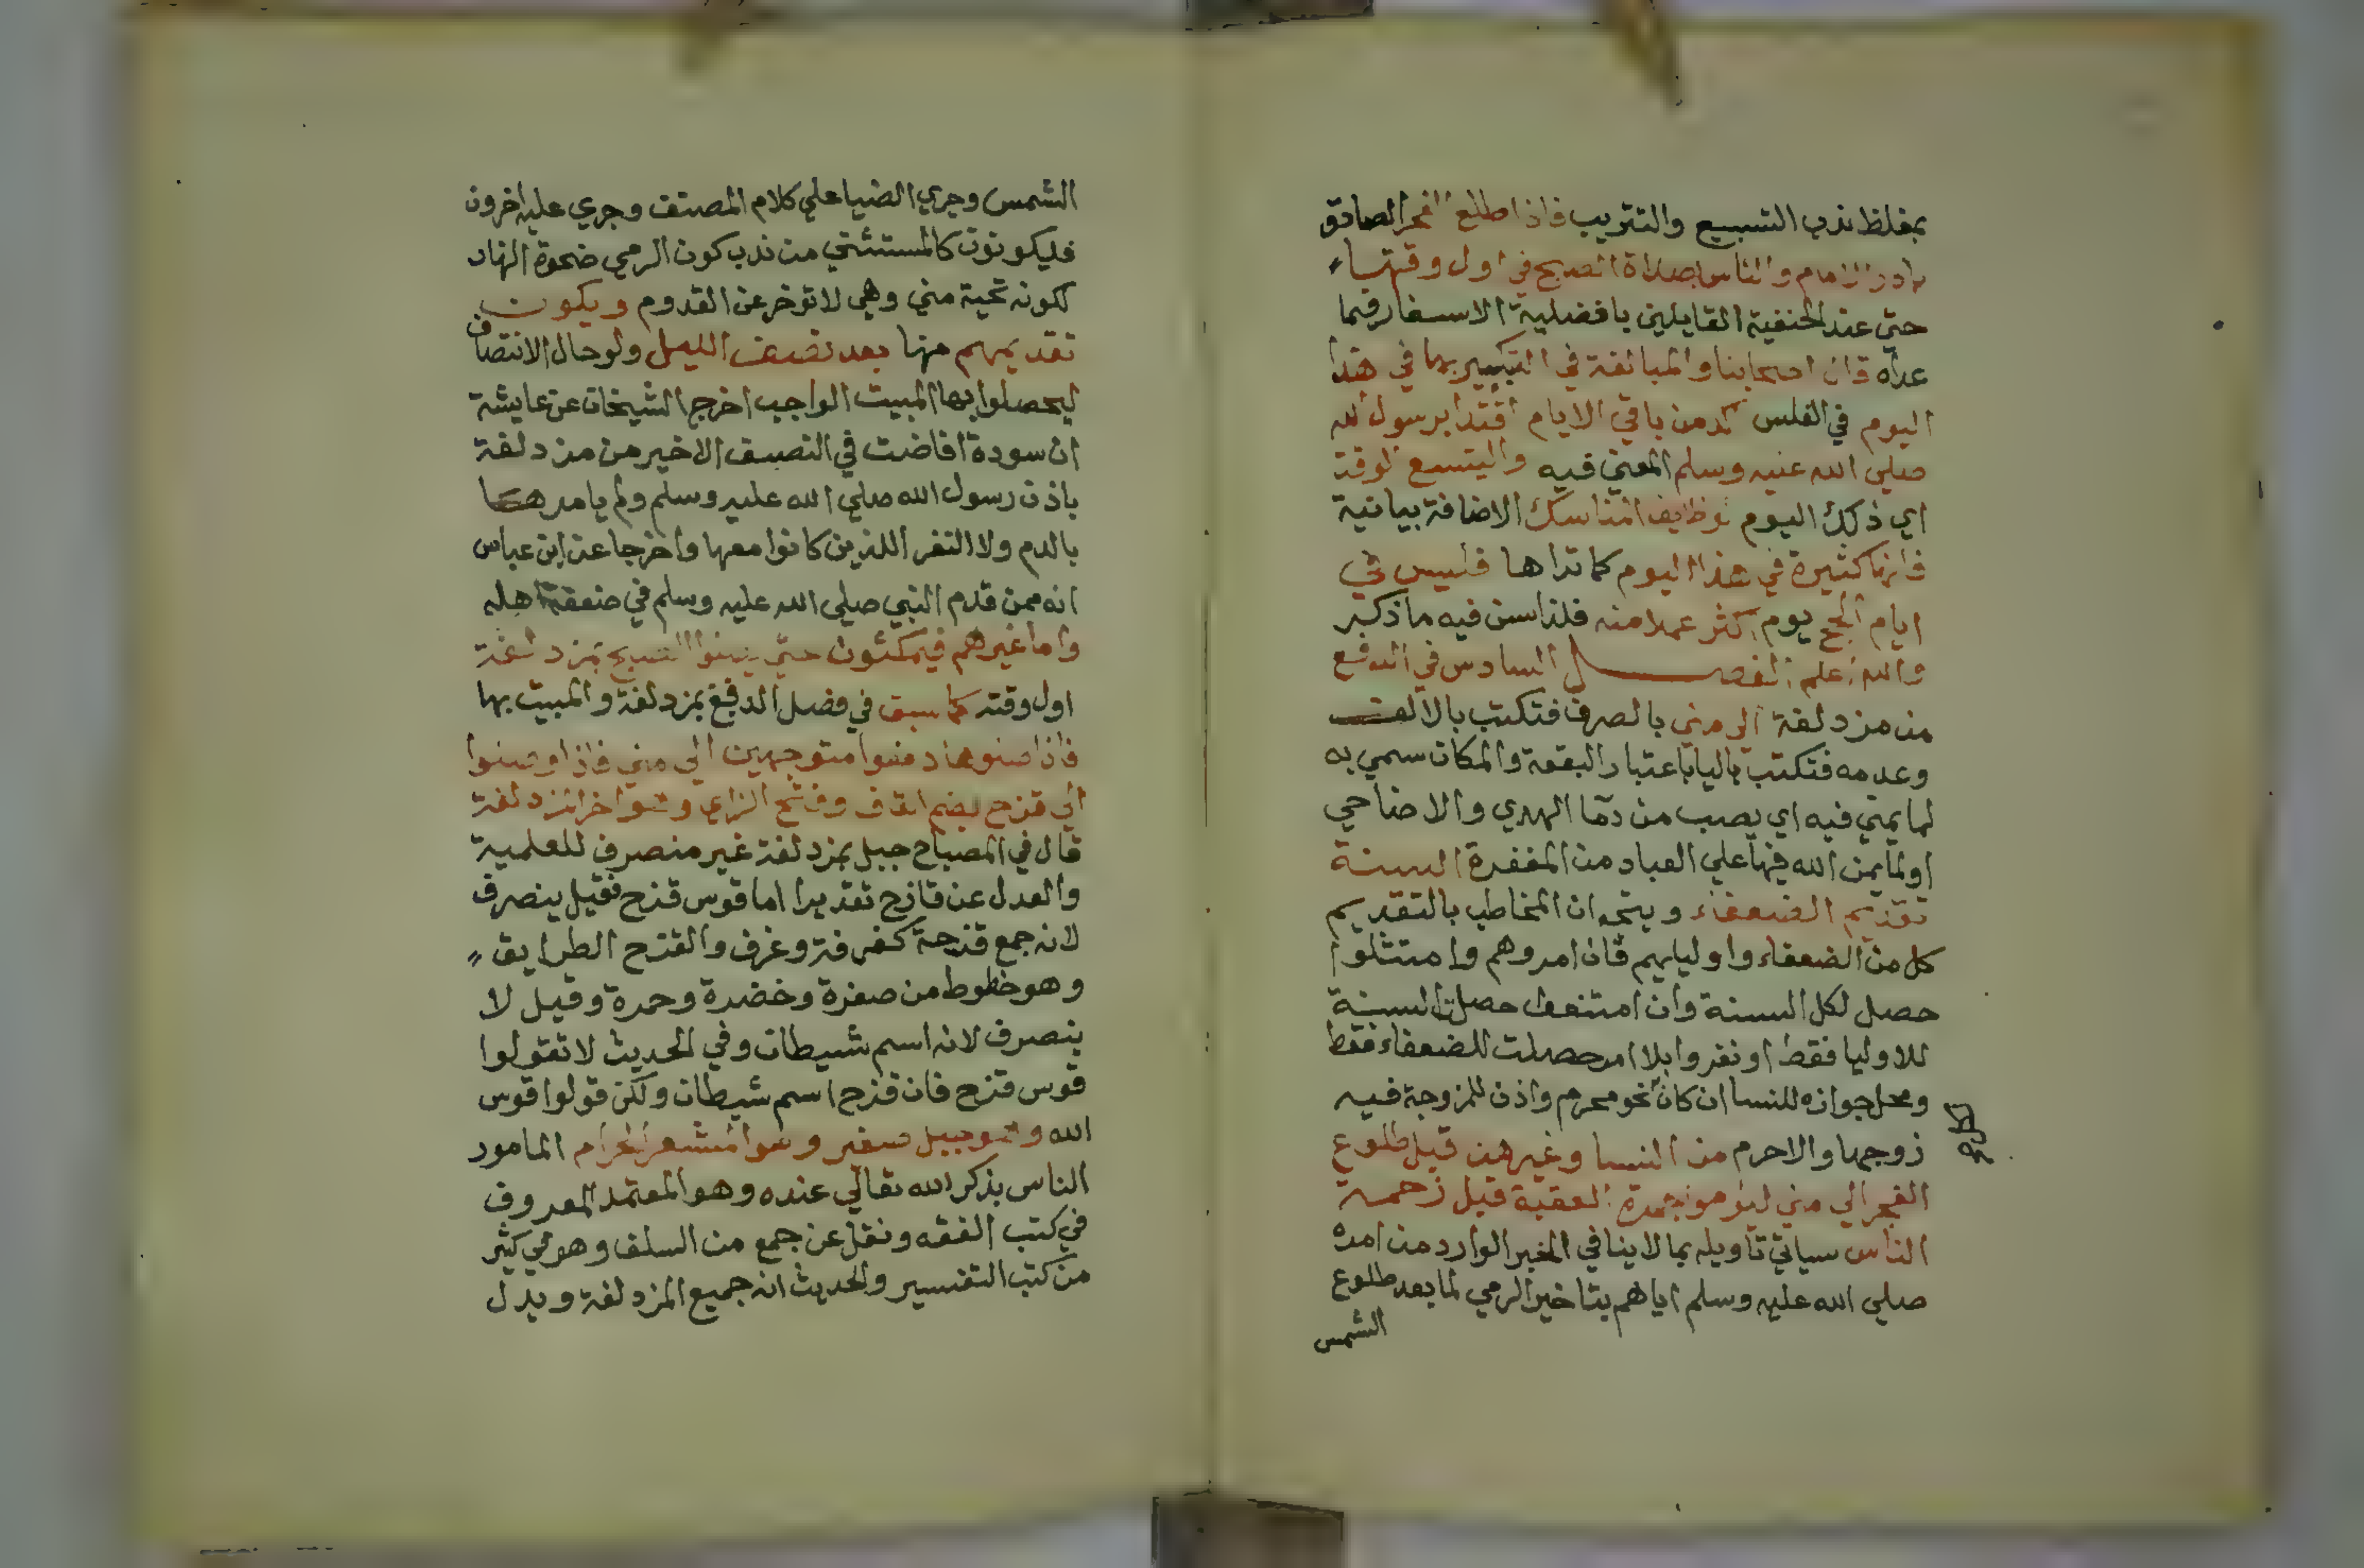 بمغلظ ندب التسبيع والتتريب فاذا طلع الفجر الصادق
بادر الامام والناس بصلاة الصبح في اول وقتها
حتي عند الحنفية القايلين بافضلية الاسفار فيما
عداه قال اصحابنا والمبالغة في التبكير بها في هذا
اليوم في الغلس اكد من باقي الايام اقتدا برسول الله
صلي الله عليه وسلم المعني فيه وليتسع الوقت
اي ذلك اليوم لوظايف المناسك الاضافة بيانية
فانها كثيرة في هذا اليوم كما تراها فليس في
ايام الحج يوم اكثر عملا منه فلذا سن فيه ما ذكر
والله اعلم الفصل السادس في الدفع
من مزدلفة الي مني بالصرف فتكتب بالالف
وعدمه فتكتب باليا باعتبار البقعة والمكان سمي به
لما يمني فيه اي يصب من دما الهدي والاضاحي
او لما يمن الله فيها علي العباد من المغفرة السنة
تقديم الضعفاء ويتجه ان المخاطب بالتقديم
كل من الضعفاء واوليايهم فان امروهم وامتثلوا
حصل لكل السنة وان امتنعوا حصلت السنة
للاوليا فقط او نفروا بلا امر حصلت للضعفاء فقط
ومحل جوازه للنسا ان كان نحو محرم واذن للزوجة فيه
زوجها والا حرم من النسا وغيرهن قبل طلوع
الفجر الي مني ليرموا جمرة العقبة قبل زحمة
الناس سياتي تاويله بما لا ينافي الخبر الوارد من امره
صلي الله عليه وسلم اياهم بتاخير الرمي لما بعد طلوع
الشمس
الشمس وجري الضيا علي كلام المصنف وجري عليه اخرون
فليكونون كالمستثني من ندب كون الرمي ضحوة النهار
لكونه تحية مني وهي لا توخر عن القدوم ويكون
تقديمهم منها بعد نصف الليل ولو حال الانتصاف
ليحصلوا بها المبيت الواجب اخرج الشيخان عن عايشة
ان سودة افاضت في النصف الاخير من مزدلفة
باذن رسول الله صلي الله عليه وسلم ولم يامرها
بالدم ولا النفر اللذين كانوا معها واخرجا عن ابن عباس
انه ممن قدم النبي صلي الله عليه وسلم في ضعفة اهله
واما غيرهم فيمكثون حتي يصلوا الصبح بمزدلفة
اول وقته كما سبق في فضل الدفع بمزدلفة والمبيت بها
فاذا صلوها دفعوا متوجهين الي مني فاذا وصلوا
الي قزح بضم القاف وفتح الزاي وهو اخر المزدلفة
قال في المصباح جبل بمزدلفة غير منصرف للعلمية
والعدل عن قازح تقديرا اما قوس قزح فقيل ينصرف
لانه جمع قزحة كغرفة وغرف والقزح الطرايق
وهو خطوط من صفرة وخضرة وحمرة وقيل لا
ينصرف لانه اسم شيطان وفي الحديث لا تقولوا
قوس قزح فان قزح اسم شيطان ولكن قولوا قوس
الله وهو جبيل صغير وهو المشعر الحرام المامور
الناس بذكر الله تعالي عنده وهو المعتمد المعروف
في كتب الفقه ونقل عن جمع من السلف وهو في كثير
من كتب التفسير والحديث انه جميع المزدلفة ويدل